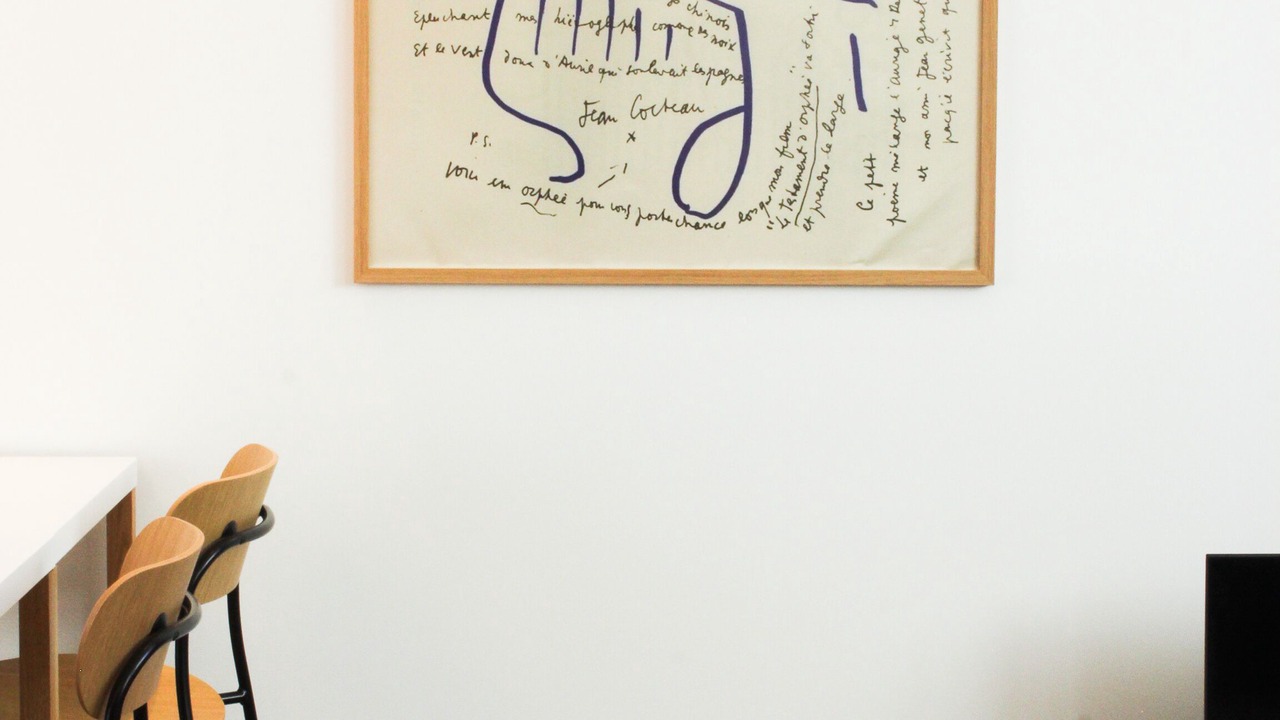 chinois
Epluchant mes hiéroglyphe comme des noix
Et le vent donc d'Avril qui soulevait les pagne
Jean Cocteau
P.S.
Voici un orphée pour vous porte chance lorsque mon film
"Le testament d'orphée" va
et prendre le large
Ce petit
poème mélange l'aurige
et mon ami Jean genet